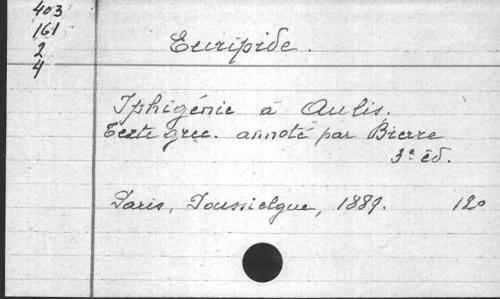 403
161
2
4
Euripide.
Iphigénie à Aulis.
Texte grec. annoté par Bierre
3e éd.
Paris, Poussielgue, 1889. 12o